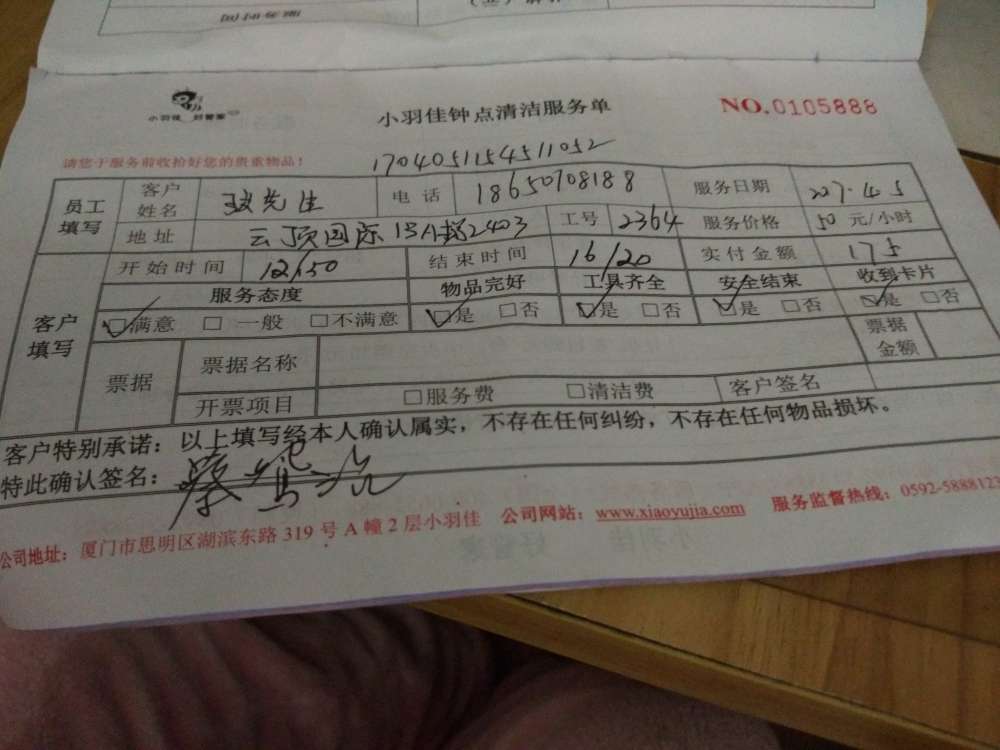 小羽佳 好管家
小羽佳钟点清洁服务单
NO.0105888
请您于服务前收拾好您的贵重物品!
1704051154511052
员工填写
客户姓名 先生 电话 18650708188 服务日期
地址 云顶国际13A梯2403 工号 2364 服务价格 50 元/小时
客户填写
开始时间 12/50 结束时间 16/20 实付金额 175
服务态度 物品完好 工具齐全 安全结束 收到卡片
☑满意 □一般 □不满意 ☑是 □否 ☑是 □否 ☑是 □否 ☑是 □否
票据 票据名称 票据金额
开票项目 □服务费 □清洁费 客户签名
客户特别承诺:以上填写经本人确认属实,不存在任何纠纷,不存在任何物品损坏。
特此确认签名:
公司地址:厦门市思明区湖滨东路 319 号 A 幢 2 层小羽佳 公司网站:www.xiaoyujia.com 服务监督热线:0592-5888123